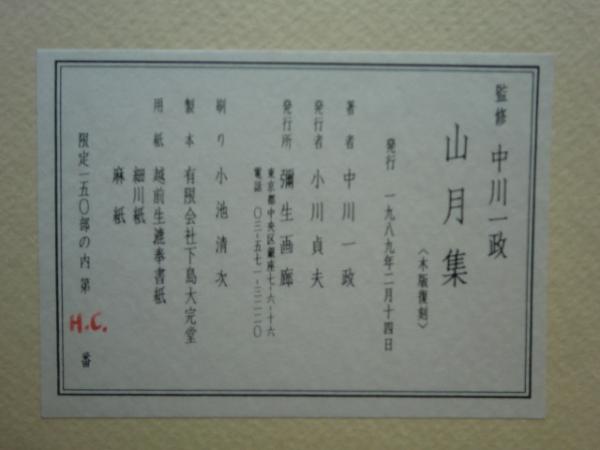 監修 中川一政
山月集
〈木版復刻〉
発行 一九八九年二月十四日
著者 中川一政
発行者 小川貞夫
発行所 彌生画廊
東京都中央区銀座七-六-十六
電話 〇三-五七一-三二二〇
刷り 小池清次
製本 有限会社下島大完堂
用紙 越前生漉奉書紙
細川紙
麻紙
限定一五〇部の内第 H.C. 番